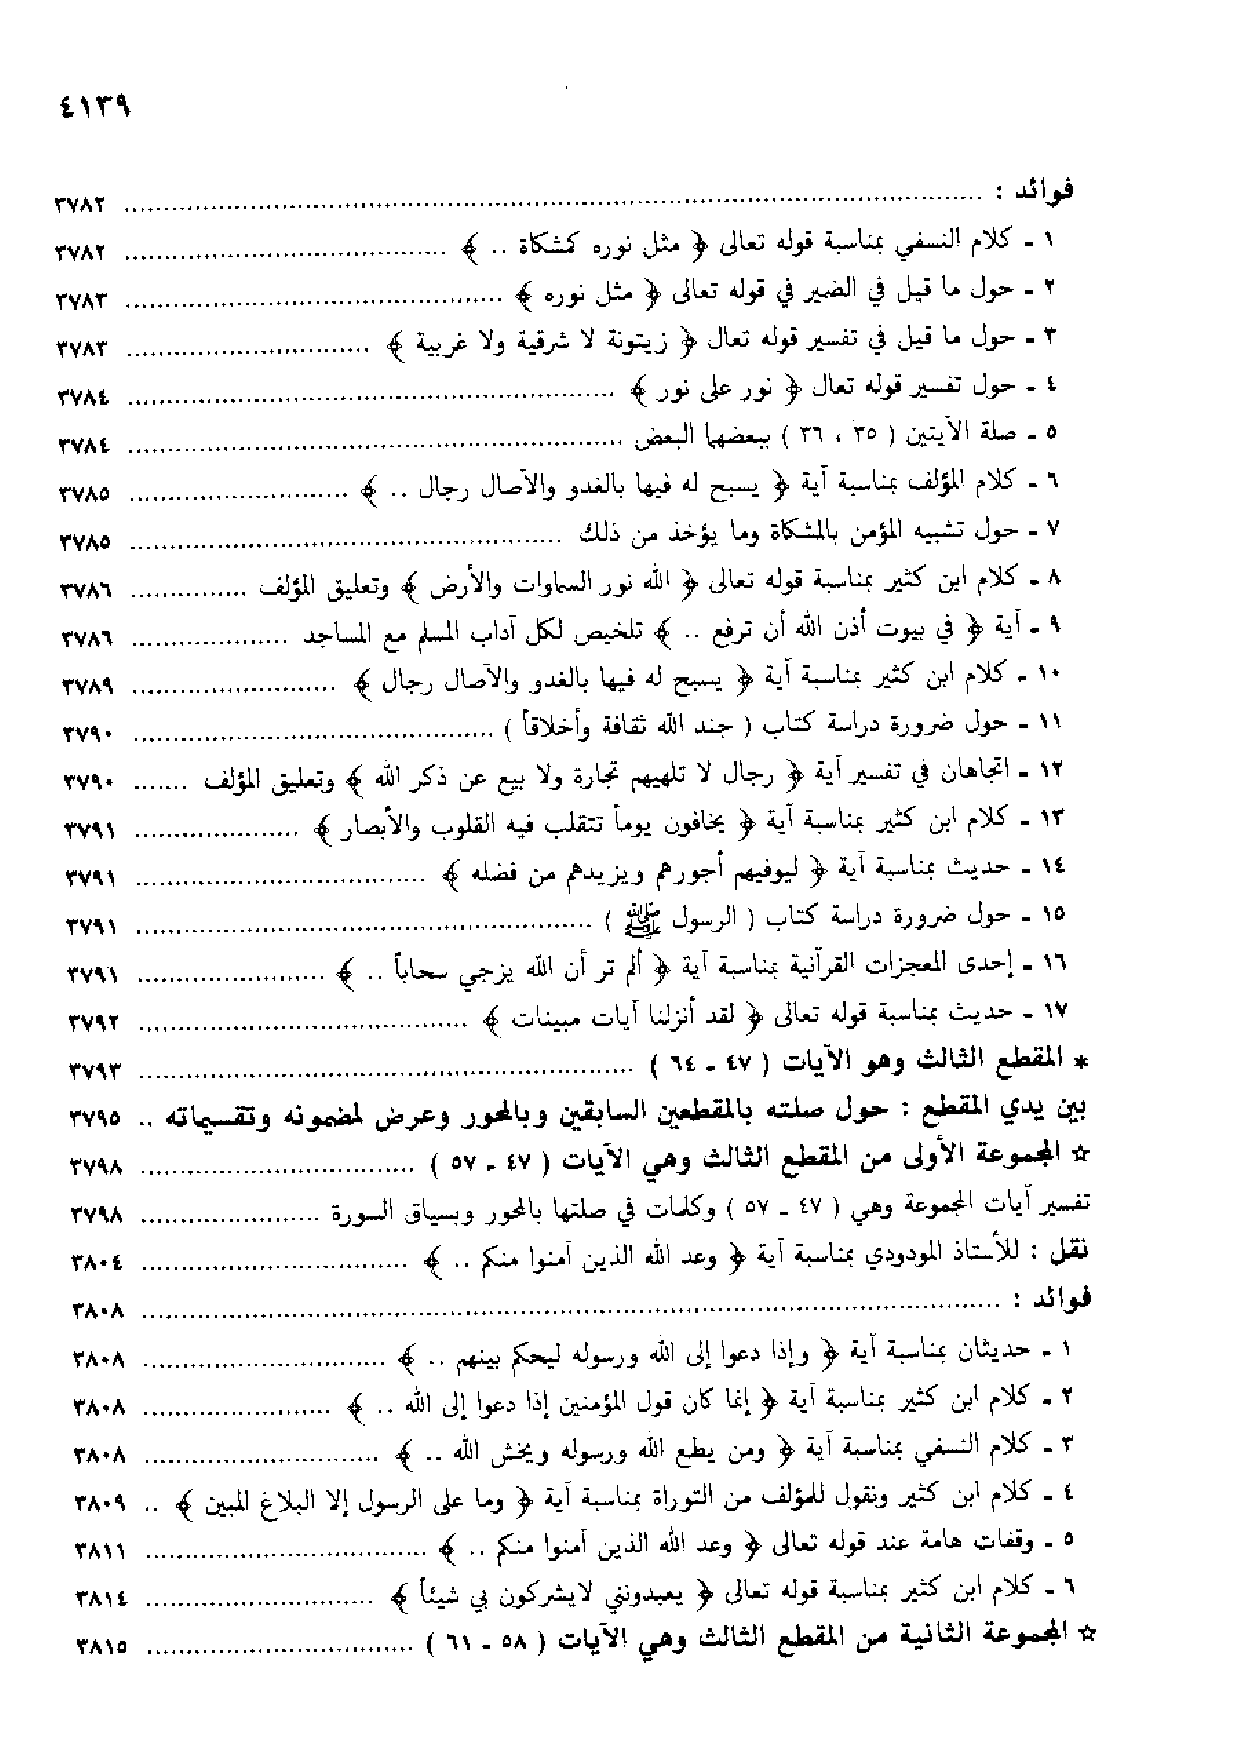 ٤١٣٩
فوائد : ........ ٣٧٨٢
١ ـ كلام النسفي بمناسبة قوله تعالى ﴿ مثل نوره كمشكاة .. ﴾ ........ ٣٧٨٢
٢ ـ حول ما قيل في الضمير في قوله تعالى ﴿ مثل نوره ﴾ ........ ٣٧٨٣
٣ ـ حول ما قيل في تفسير قوله تعال ﴿ زيتونة لا شرقية ولا غربية ﴾ ........ ٣٧٨٣
٤ ـ حول تفسير قوله تعال ﴿ نور على نور ﴾ ........ ٣٧٨٤
٥ ـ صلة الآيتين ( ٣٥ ، ٣٦ ) ببعضهما البعض ........ ٣٧٨٤
٦ ـ كلام المؤلف بمناسبة آية ﴿ يسبح له فيها بالغدو والآصال رجال .. ﴾ ........ ٣٧٨٥
٧ ـ حول تشبيه المؤمن بالمشكاة وما يؤخذ من ذلك ........ ٣٧٨٥
٨ ـ كلام ابن كثير بمناسبة قوله تعالى ﴿ الله نور السماوات والأرض ﴾ وتعليق المؤلف ........ ٣٧٨٦
٩ ـ آية ﴿ في بيوت أذن الله أن ترفع .. ﴾ تلخيص لكل آداب المسلم مع المساجد ........ ٣٧٨٦
١٠ ـ كلام ابن كثير بمناسبة آية ﴿ يسبح له فيها بالغدو والآصال رجال ﴾ ........ ٣٧٨٩
١١ ـ حول ضرورة دراسة كتاب ( جند الله ثقافة وأخلاقاً ) ........ ٣٧٩٠
١٢ ـ اتجاهان في تفسير آية ﴿ رجال لا تلهيهم تجارة ولا بيع عن ذكر الله ﴾ وتعليق المؤلف ....... ٣٧٩٠
١٣ ـ كلام ابن كثير بمناسبة آية ﴿ يخافون يوماً تتقلب فيه القلوب والأبصار ﴾ ........ ٣٧٩١
١٤ ـ حديث بمناسبة آية ﴿ ليوفيهم أجورهم ويزيدهم من فضله ﴾ ........ ٣٧٩١
١٥ ـ حول ضرورة دراسة كتاب ( الرسول ﷺ ) ........ ٣٧٩١
١٦ ـ إحدى المعجزات القرآنية بمناسبة آية ﴿ ألم تر أن الله يزجي سحاباً .. ﴾ ........ ٣٧٩١
١٧ ـ حديث بمناسبة قوله تعالى ﴿ لقد أنزلنا آيات مبينات ﴾ ........ ٣٧٩٢
* المقطع الثالث وهو الآيات ( ٤٧ ـ ٦٤ ) ........ ٣٧٩٣
بين يدي المقطع : حول صلته بالمقطعين السابقين وبالمحور وعرض لمضمونه وتقسيماته .. ٣٧٩٥
☆ المجموعة الأولى من المقطع الثالث وهي الآيات ( ٤٧ ـ ٥٧ ) ........ ٣٧٩٨
تفسير آيات المجموعة وهي ( ٤٧ ـ ٥٧ ) وكلمات في صلتها بالمحور وبسياق السورة ........ ٣٧٩٨
نقل : للأستاذ المودودي بمناسبة آية ﴿ وعد الله الذين آمنوا منكم .. ﴾ ........ ٣٨٠٤
فوائد : ........ ٣٨٠٨
١ ـ حديثان بمناسبة آية ﴿ وإذا دعوا إلى الله ورسوله ليحكم بينهم .. ﴾ ........ ٣٨٠٨
٢ ـ كلام ابن كثير بمناسبة آية ﴿ إنما كان قول المؤمنين إذا دعوا إلى الله .. ﴾ ........ ٣٨٠٨
٣ ـ كلام النسفي بمناسبة آية ﴿ ومن يطع الله ورسوله ويخش الله .. ﴾ ........ ٣٨٠٨
٤ ـ كلام ابن كثير ونقول للمؤلف من التوراة بمناسبة آية ﴿ وما على الرسول إلا البلاغ المبين ﴾ .. ٣٨٠٩
٥ ـ وقفات هامة عند قوله تعالى ﴿ وعد الله الذين آمنوا منكم .. ﴾ ........ ٣٨١١
٦ ـ كلام ابن كثير بمناسبة قوله تعالى ﴿ يعبدونني لايشركون بي شيئاً ﴾ ........ ٣٨١٤
☆ المجموعة الثانية من المقطع الثالث وهي الآيات ( ٥٨ ـ ٦١ ) ........ ٣٨١٥